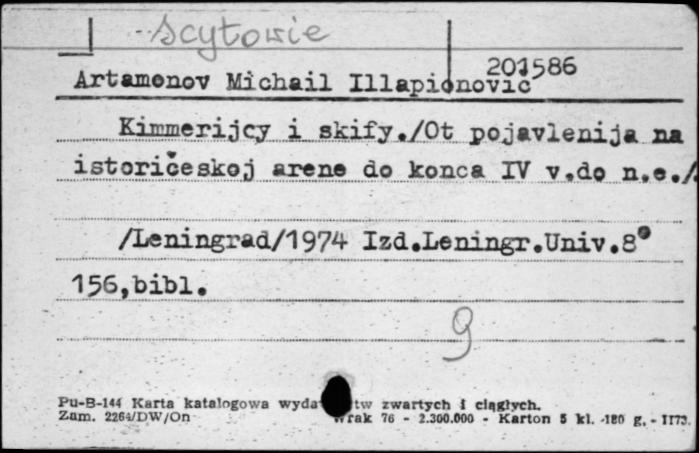 scytowie
201586
Artamonov Michail Illapionovic
Kimmerijcy i skify./Ot pojavlenija na
istoričeskoj arene do konca IV v.do n.e./.
/Leningrad/1974 Izd.Leningr.Univ.8°
156,bibl.
9
Pu-B-144 Karta katalogowa zwartych i ciągłych.
Zam. 2264/DW/On 76 - 2.300.000 - Karton 5 kl. -180 g. - II73.